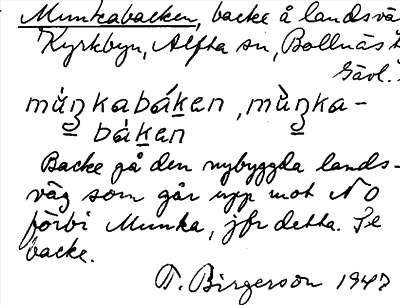 Munkabacken, backe å landsvä
Kyrkbyn, Alfta sn, Bollnäs
Gävl.
muŋkabáken, muŋka-
báken
Backe på den nybyggda lands-
väg som går upp mot NO
förbi Munka, jfr detta. Se
backe.
T. Birgerson 1947